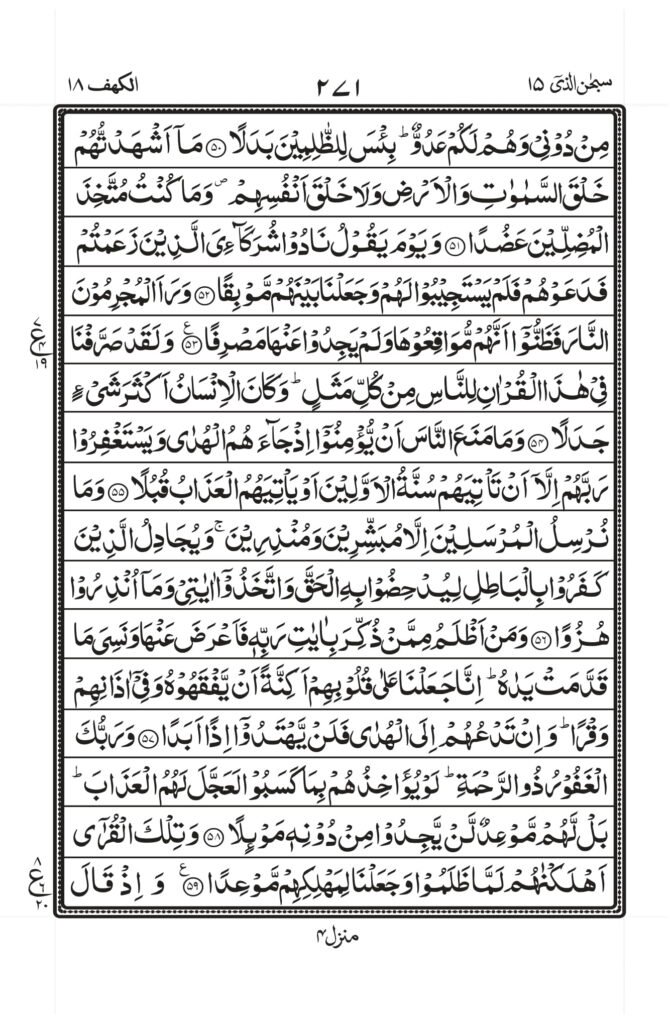 سبحٰن الذیٓ ۱۵
۲۷۱
الکهف ۱۸
مِنۡ دُوۡنِیۡ وَهُمۡ لَکُمۡ عَدُوٌّ ؕ بِئۡسَ لِلظّٰلِمِیۡنَ بَدَلًا ﴿۵۰﴾ مَاۤ اَشۡهَدۡتُّهُمۡ
خَلۡقَ السَّمٰوٰتِ وَالۡاَرۡضِ وَلَا خَلۡقَ اَنۡفُسِهِمۡ ۪ وَمَا کُنۡتُ مُتَّخِذَ
الۡمُضِلِّیۡنَ عَضُدًا ﴿۵۱﴾ وَیَوۡمَ یَقُوۡلُ نَادُوۡا شُرَکَآءِیَ الَّذِیۡنَ زَعَمۡتُمۡ
فَدَعَوۡهُمۡ فَلَمۡ یَسۡتَجِیۡبُوۡا لَهُمۡ وَجَعَلۡنَا بَیۡنَهُمۡ مَّوۡبِقًا ﴿۵۲﴾ وَرَاَ الۡمُجۡرِمُوۡنَ
النَّارَ فَظَنُّوۡۤا اَنَّهُمۡ مُّوَاقِعُوۡهَا وَلَمۡ یَجِدُوۡا عَنۡهَا مَصۡرِفًا ﴿۵۳﴾ع وَلَقَدۡ صَرَّفۡنَا
۷
ع ۴
۱۹
فِیۡ هٰذَا الۡقُرۡاٰنِ لِلنَّاسِ مِنۡ کُلِّ مَثَلٍ ؕ وَکَانَ الۡاِنۡسَانُ اَکۡثَرَ شَیۡءٍ
جَدَلًا ﴿۵۴﴾ وَمَا مَنَعَ النَّاسَ اَنۡ یُّؤۡمِنُوۡۤا اِذۡ جَآءَهُمُ الۡهُدٰی وَیَسۡتَغۡفِرُوۡا
رَبَّهُمۡ اِلَّاۤ اَنۡ تَاۡتِیَهُمۡ سُنَّةُ الۡاَوَّلِیۡنَ اَوۡ یَاۡتِیَهُمُ الۡعَذَابُ قُبُلًا ﴿۵۵﴾ وَمَا
نُرۡسِلُ الۡمُرۡسَلِیۡنَ اِلَّا مُبَشِّرِیۡنَ وَمُنۡذِرِیۡنَ ۚ وَیُجَادِلُ الَّذِیۡنَ
کَفَرُوۡا بِالۡبَاطِلِ لِیُدۡحِضُوۡا بِهِ الۡحَقَّ وَاتَّخَذُوۡۤا اٰیٰتِیۡ وَمَاۤ اُنۡذِرُوۡا
هُزُوًا ﴿۵۶﴾ وَمَنۡ اَظۡلَمُ مِمَّنۡ ذُکِّرَ بِاٰیٰتِ رَبِّهٖ فَاَعۡرَضَ عَنۡهَا وَنَسِیَ مَا
قَدَّمَتۡ یَدٰهُ ؕ اِنَّا جَعَلۡنَا عَلٰی قُلُوۡبِهِمۡ اَکِنَّةً اَنۡ یَّفۡقَهُوۡهُ وَفِیۡۤ اٰذَانِهِمۡ
وَقۡرًا ؕ وَاِنۡ تَدۡعُهُمۡ اِلَی الۡهُدٰی فَلَنۡ یَّهۡتَدُوۡۤا اِذًا اَبَدًا ﴿۵۷﴾ وَرَبُّكَ
الۡغَفُوۡرُ ذُو الرَّحۡمَةِ ؕ لَوۡ یُؤَاخِذُهُمۡ بِمَا کَسَبُوۡا لَعَجَّلَ لَهُمُ الۡعَذَابَ ؕ
بَلۡ لَّهُمۡ مَّوۡعِدٌ لَّنۡ یَّجِدُوۡا مِنۡ دُوۡنِهٖ مَوۡىِٕلًا ﴿۵۸﴾ وَتِلۡكَ الۡقُرٰۤی
اَهۡلَکۡنٰهُمۡ لَمَّا ظَلَمُوۡا وَجَعَلۡنَا لِمَهۡلِکِهِمۡ مَّوۡعِدًا ﴿۵۹﴾ع وَاِذۡ قَالَ
۸
ع ۶
۲۰
منزل۴